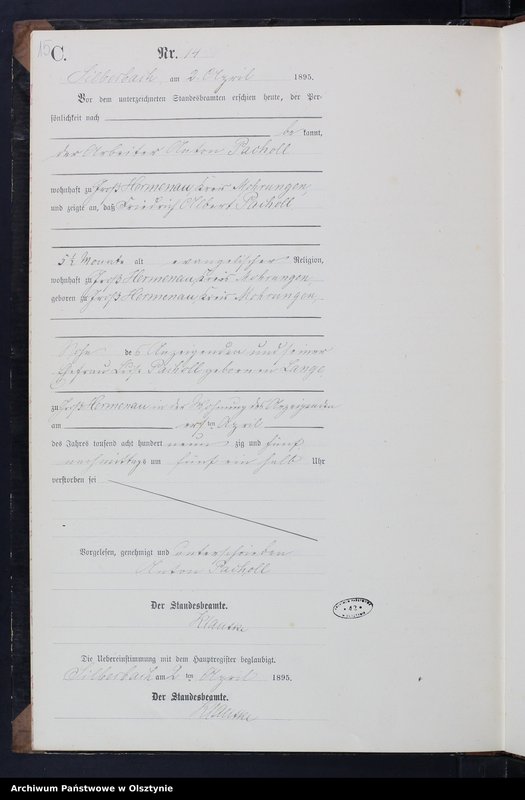 15
C.
Nr. 14
Silberbach am 2. April 1895.
Vor dem unterzeichneten Standesbeamten erschien heute, der Per-
sönlichkeit nach
be kannt,
der Arbeiter Anton Pacholl
wohnhaft zu Groß Hermenau Kreis Mohrungen
und zeigte an, daß Friedrich Albert Pacholl
5½ Monate alt evangelischer Religion,
wohnhaft zu Groß Hermenau Kreis Mohrungen
geboren zu Groß Hermenau Kreis Mohrungen,
Sohn des Anzeigenden und seiner
Ehefrau Pacholl geborenen Lange
zu Groß Hermenau in der Wohnung des Anzeigenden
am ersten April
des Jahres tausend acht hundert neun zig und fünf
nachmittags um fünf ein halb Uhr
verstorben sei
Vorgelesen, genehmigt und unterschrieben
Anton Pacholl
Der Standesbeamte.
Die Uebereinstimmung mit dem Hauptregister beglaubigt.
Silberbach am 2 ten April 1895.
Der Standesbeamte.
Archiwum Państwowe w Olsztynie